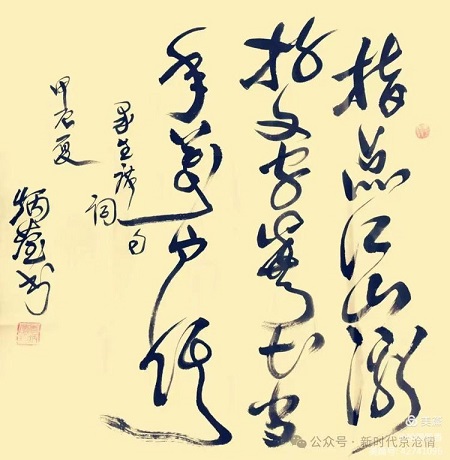 指点江山激
扬文字粪土当
年萬户侯
主席词句
甲辰夏
书
公众号 · 新时代京沧